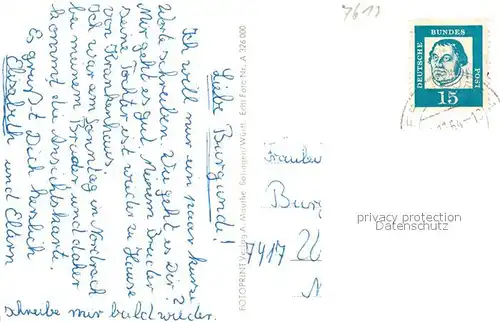 7617
DEUTSCHE BUNDES POST
15
Liebe Burgund!
Ich will nur ein paar kurze
Worte schreiben. Wie geht es Dir?
Mir geht es gut. Meinem Bruder
seine Tochter ist wieder zu Hause
vom Krankenhaus.
Ich war am Sonntag in
bei meinem Bruder und daher
kommt die Ansichtskarte.
Es grüßt Dich herzlich
Elisabeth und Eltern
schreibe mir bald wieder.
FOTOPRINT Verlag A. Mauthe Bösingen/Württ. Ernt Fetz Nr. A 326 000
Fräulein
Burg
7417
privacy protection
Datenschutz